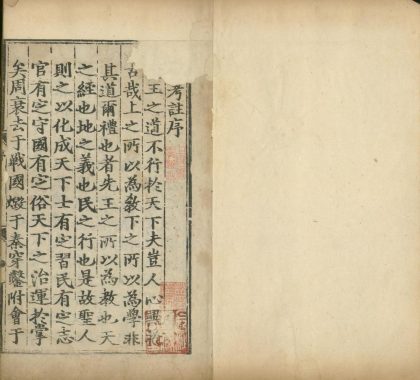 考註序
王之道不行於天下夫豈人心
古哉上之所以為教下之所以為學非
其道爾禮也者先王之所以為教也天
之經也地之義也民之行也是故聖人
則之以化成天下士有定習民有定志
官有定守國有定俗天下之治運於掌
矣周衰去于戰國燬于秦穿鑿附會于